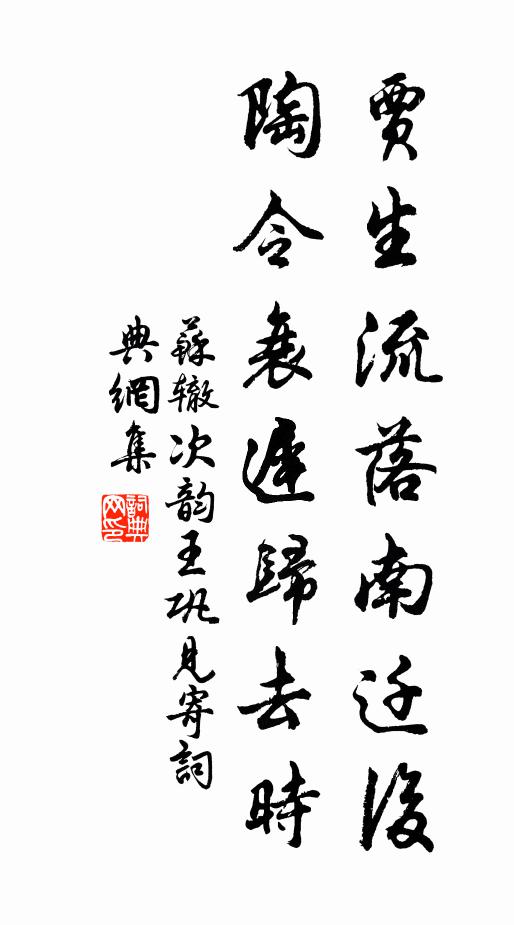 賈生流落南迁後
陶令衰遲歸去時
蘇辙次韵王巩見寄詞
典網集
詞典网印